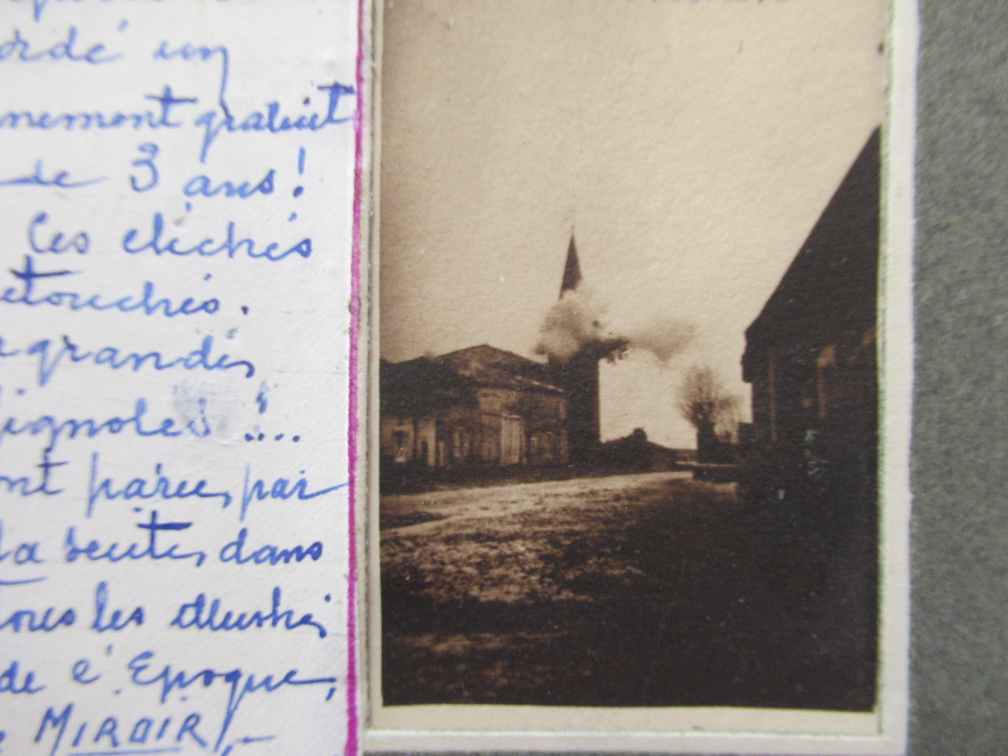 ordé un
nement gratuit
de 3 ans!
Ces clichés
etouchés.
grandes
ignoles !...
nt parues, par
la suite, dans
tous les illustrés
de l'Epoque,
MIROIR, -